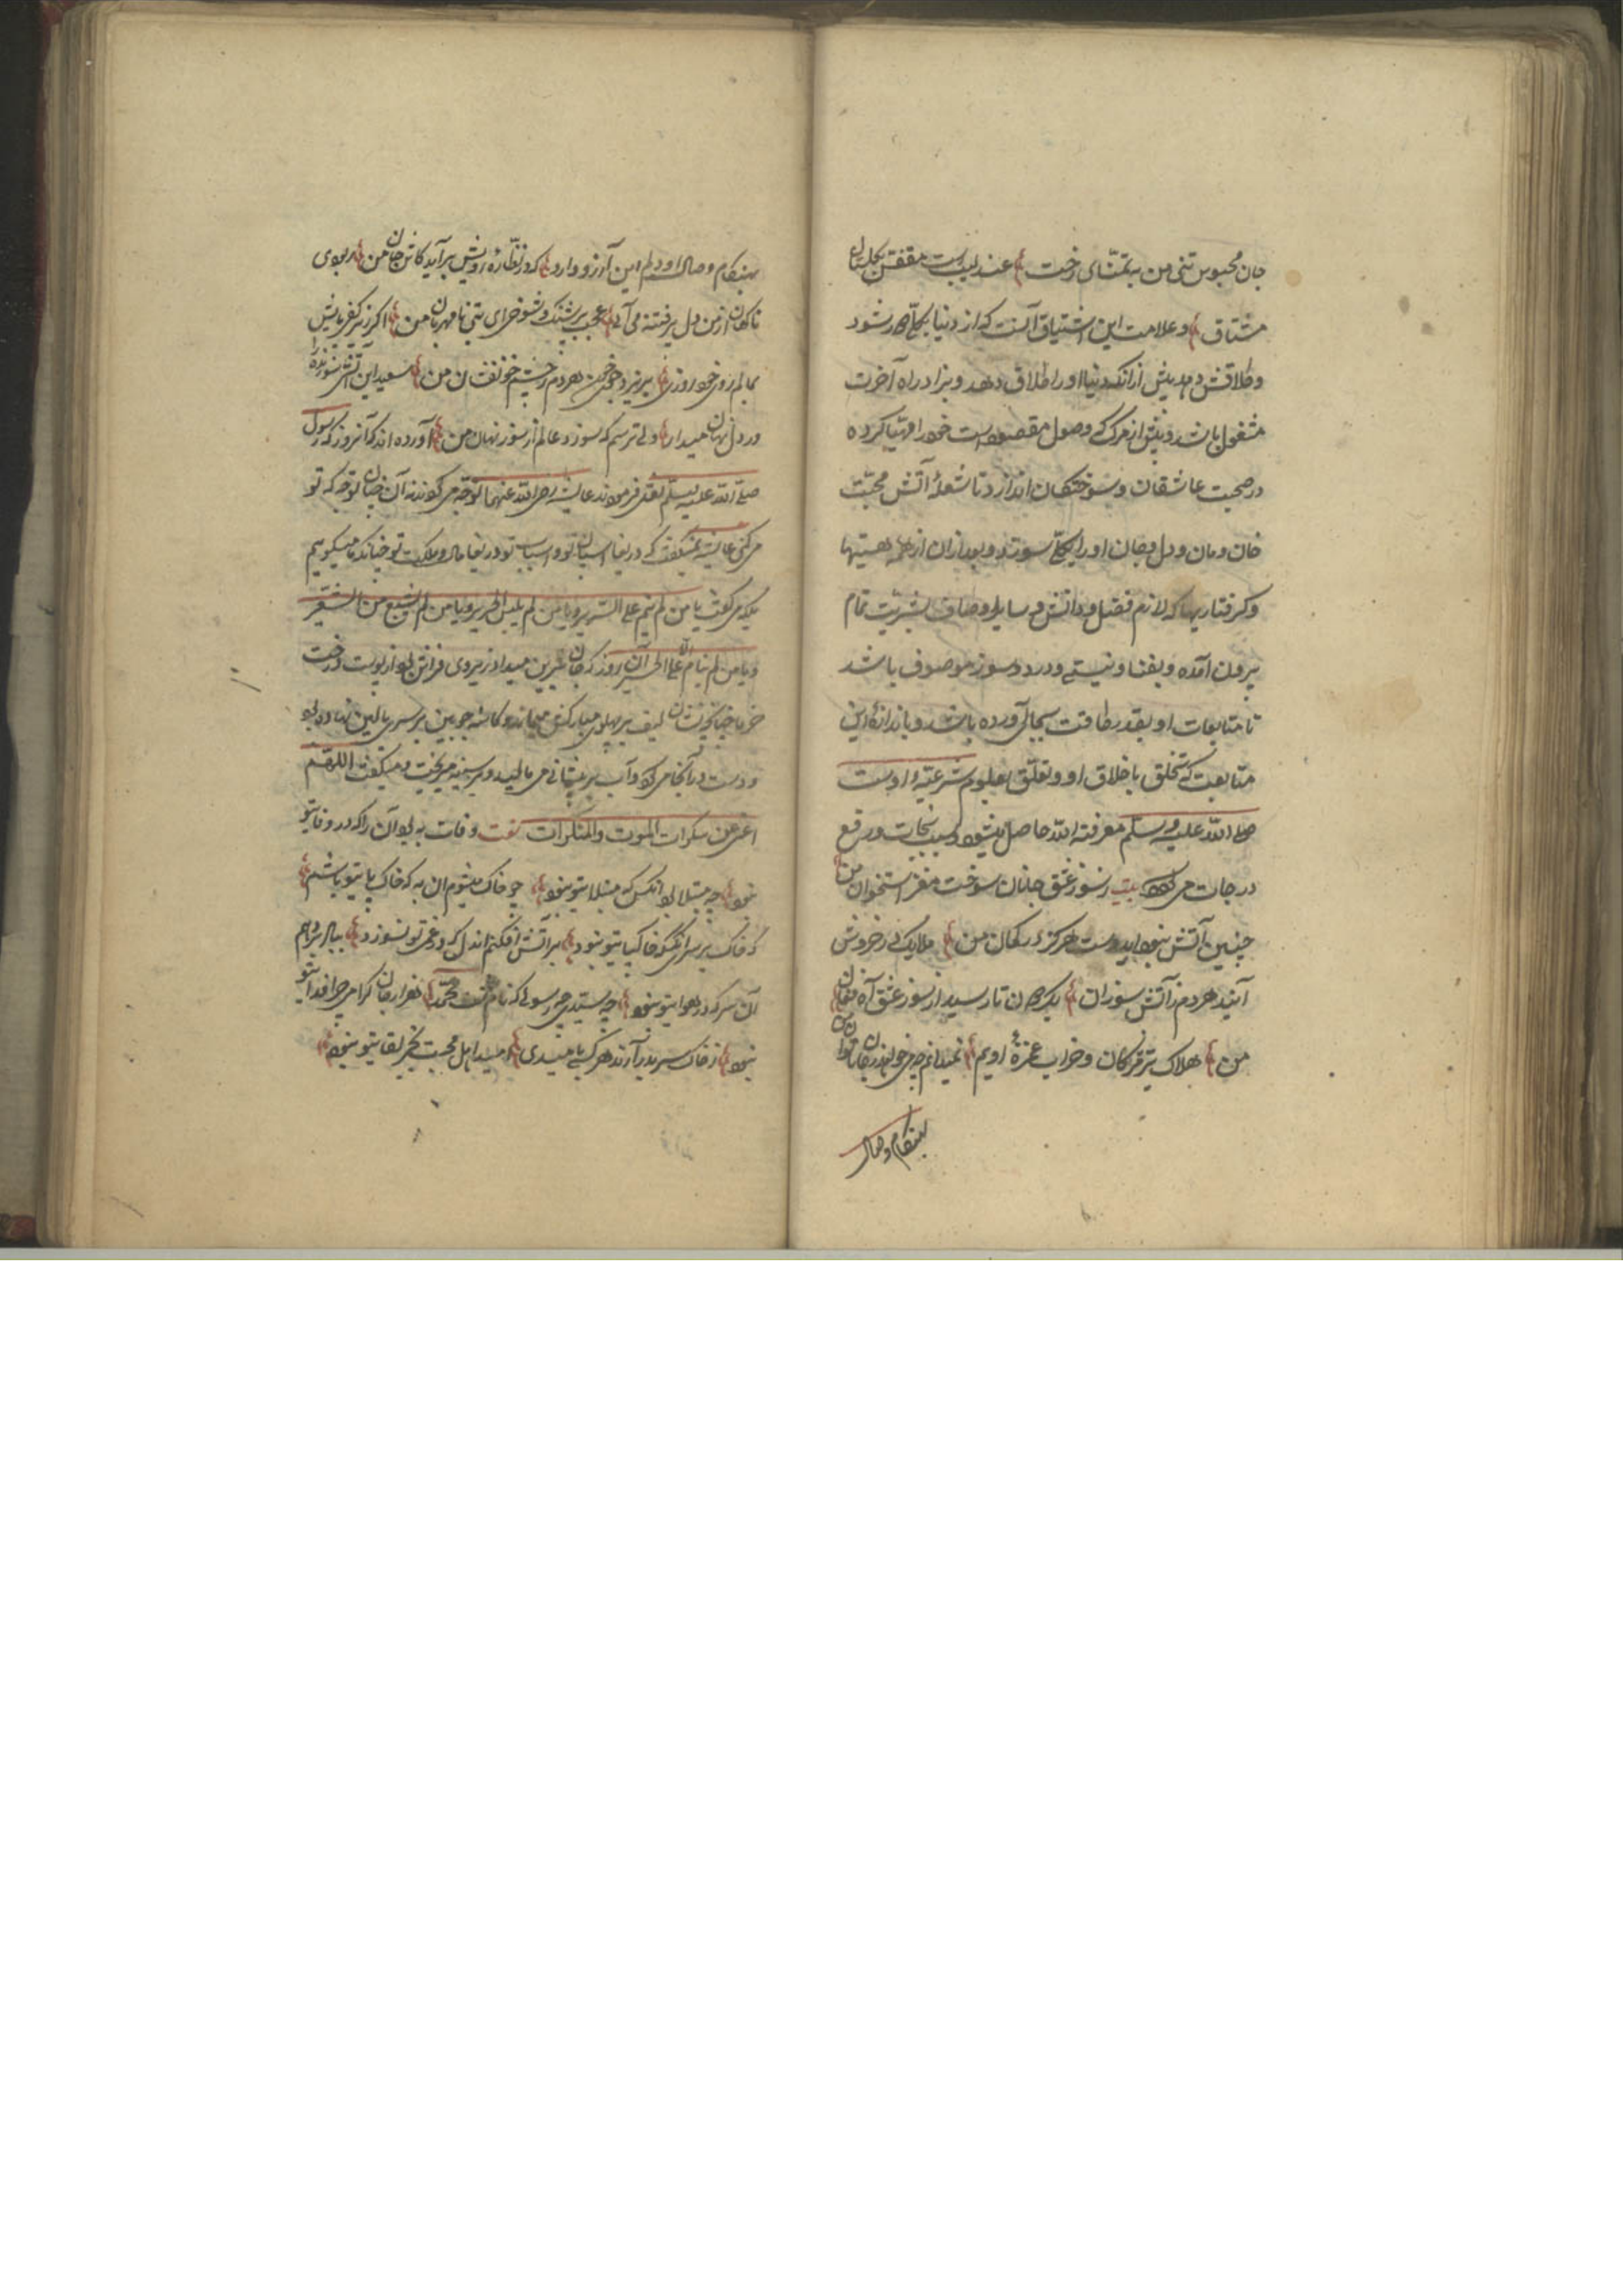 جان محبوس تنی من به تمنّای رخت عندلیبیست مقفّص بگلستان
مشتاق و علامت این اشتیاق آنست که از دنیا بکلّی دور شود
و طلاقش دهد پیش از آنکه دنیا او را طلاق دهد و بزاد راه آخرت
مشغول باشد و پیش از مرگ که وصول مقصود است خود را مهیّا کرده
در صحبت عاشقان و سوختگان اندازد تا شعلهٔ آتش محبّت
خان و مان و دل و جان او را بکلّی سوزد و بعد از آن از همه هستیها
و گرفتاریها که لازم فضل و دانش و سایر اوصاف بشریّت تمام
بیرون آمده و بفنا و نیستی و درد و سوز موصوف باشد
تا متابعات او بقدر طاقت بجای آورده باشد و باندازهٔ این
متابعت که تخلّق باخلاق او و تعلّق بعلوم شرعیّهٔ اوست
صلی الله علیه وسلّم معرفة الله حاصل میشود و سبب نجات و رفع
درجات می‌گردد بیت ز سوز عشق چنان سوخت مغز استخوان من
چنین آتش نبود ای دوست هرگز در گمان من ملایک در خروش
آیند هر دم ز آتش سوزان سید از سوز عشق آه و فغان
من هلاک تیر مژگان و خراب غمزهٔ اویم نمیدانم چه میخواهد ز جان ناتوان من
بهنگام وصال
بهنگام وصال او دلم این آرزو دارد که در نظّارهٔ رویش برآید کاش جان من
ناگهان از من دل پر فتنه می عجب شنگ و شوخ نامهربان من اگر
خود روزی بریزد خون هر دم ز چشم خونفشان من سعید این آتش سوزنده را
در دل نهان میدار ولی ترسم که سوزد عالم از سوز نهان من آورده‌اند که آنروز که رسول
صلّی الله علیه وسلّم نقل فرمودند عایشه رضی الله عنها نوحه می‌کرد نه آن چنان نوحه که تو
می‌کنی عایشه نمیگفت که دریغا اسپان تو و اسباب تو دریغا مال و ملکت تو چنانکه ما میگوییم
بلکه می‌گفت یا من لم ینم علی السّریر و یا من لم یلبس الحریر و یا من لم یشبع من الشّعیر
و یا من لم ینام الّا علی الحصیر آن روز که جان شیرین میداد زیر وی فراش بود از پوست درخت
خرما چنانکه نشان لیف بر پهلوی مبارکش میماند و کاسهٔ چوبین بر سر بالین نهاده بود
و دست در آنجا می‌کرد و آب بر پیشانی می‌مالید و بر سینه میریخت و میگفت اللهمّ
اعنّی علی سکرات الموت والمنکرات نعت وفات به بود آن را که در وفا تو
نبود چه مبتلا بود آنکس که مبتلا تو نبود چو خاک میشوم آن به که خاک پا تو باشم
که خاک بر سر آنکس که خاک پا تو نبود بر آتش افکنم آن دل که در غم تو نسوزد
آن سر که در هوا تو نبود چه سیّدی چه رسولی که نام تست محمّد هزار جان گرامی چرا فدا تو
نبود ز خاک سر بدر آرند هر کسی بامیدی امید اهل محبّت بجز لقا تو نبود